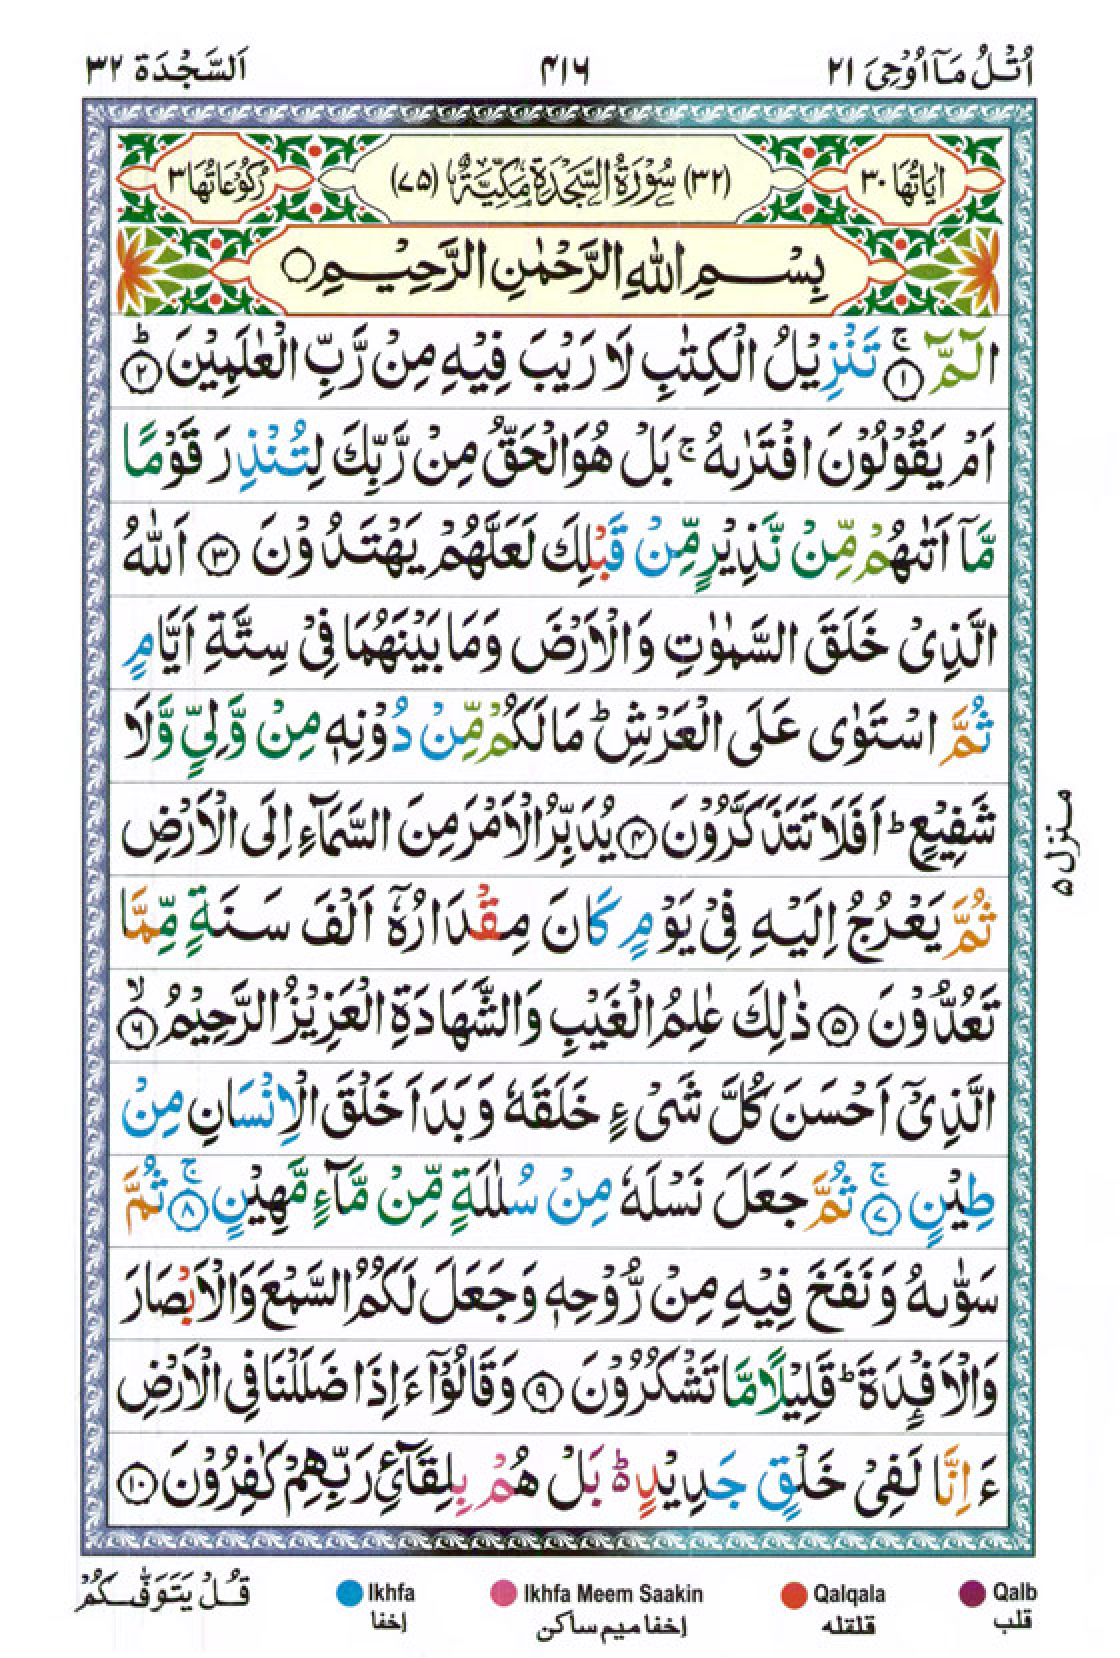 اُتْلُ مَآ اُوْحِیَ ۲۱
۴۱۶
اَلسَّجْدَة ۳۲
اٰیَاتُهَا ۳۰
(۳۲) سُوْرَةُ السَّجْدَةِ مَکِّیَّةٌ (۷۵)
رُکُوْعَاتُهَا ۳
بِسْمِ اللّٰهِ الرَّحْمٰنِ الرَّحِیْمِ ○
الٓمّٓ ۚ﴿۱﴾ تَنْزِیْلُ الْکِتٰبِ لَا رَیْبَ فِیْهِ مِنْ رَّبِّ الْعٰلَمِیْنَ ؕ﴿۲﴾
اَمْ یَقُوْلُوْنَ افْتَرٰىهُ ۚ بَلْ هُوَ الْحَقُّ مِنْ رَّبِّكَ لِتُنْذِرَ قَوْمًا
مَّآ اَتٰىهُمْ مِّنْ نَّذِیْرٍ مِّنْ قَبْلِكَ لَعَلَّهُمْ یَهْتَدُوْنَ ﴿۳﴾ اَللّٰهُ
الَّذِیْ خَلَقَ السَّمٰوٰتِ وَالْاَرْضَ وَمَا بَیْنَهُمَا فِیْ سِتَّةِ اَیَّامٍ
ثُمَّ اسْتَوٰی عَلَی الْعَرْشِ ؕ مَا لَکُمْ مِّنْ دُوْنِهٖ مِنْ وَّلِیٍّ وَّلَا
شَفِیْعٍ ؕ اَفَلَا تَتَذَکَّرُوْنَ ﴿۴﴾ یُدَبِّرُ الْاَمْرَ مِنَ السَّمَآءِ اِلَی الْاَرْضِ
ثُمَّ یَعْرُجُ اِلَیْهِ فِیْ یَوْمٍ کَانَ مِقْدَارُهٗۤ اَلْفَ سَنَةٍ مِّمَّا
تَعُدُّوْنَ ﴿۵﴾ ذٰلِكَ عٰلِمُ الْغَیْبِ وَالشَّهَادَةِ الْعَزِیْزُ الرَّحِیْمُ ۙ﴿۶﴾
الَّذِیْۤ اَحْسَنَ کُلَّ شَیْءٍ خَلَقَهٗ وَبَدَاَ خَلْقَ الْاِنْسَانِ مِنْ
طِیْنٍ ۚ﴿۷﴾ ثُمَّ جَعَلَ نَسْلَهٗ مِنْ سُلٰلَةٍ مِّنْ مَّآءٍ مَّهِیْنٍ ۚ﴿۸﴾ ثُمَّ
سَوّٰىهُ وَنَفَخَ فِیْهِ مِنْ رُّوْحِهٖ وَجَعَلَ لَکُمُ السَّمْعَ وَالْاَبْصَارَ
وَالْاَفْـِٕدَةَ ؕ قَلِیْلًا مَّا تَشْکُرُوْنَ ﴿۹﴾ وَقَالُوْۤا ءَاِذَا ضَلَلْنَا فِی الْاَرْضِ
ءَاِنَّا لَفِیْ خَلْقٍ جَدِیْدٍ ؕ۬ بَلْ هُمْ بِلِقَآئِ رَبِّهِمْ کٰفِرُوْنَ ﴿۱۰﴾
منزل ۵
قُلْ یَتَوَفّٰىکُمْ
Ikhfa
اخفا
Ikhfa Meem Saakin
اخفا میم ساکن
Qalqala
قلقله
Qalb
قلب